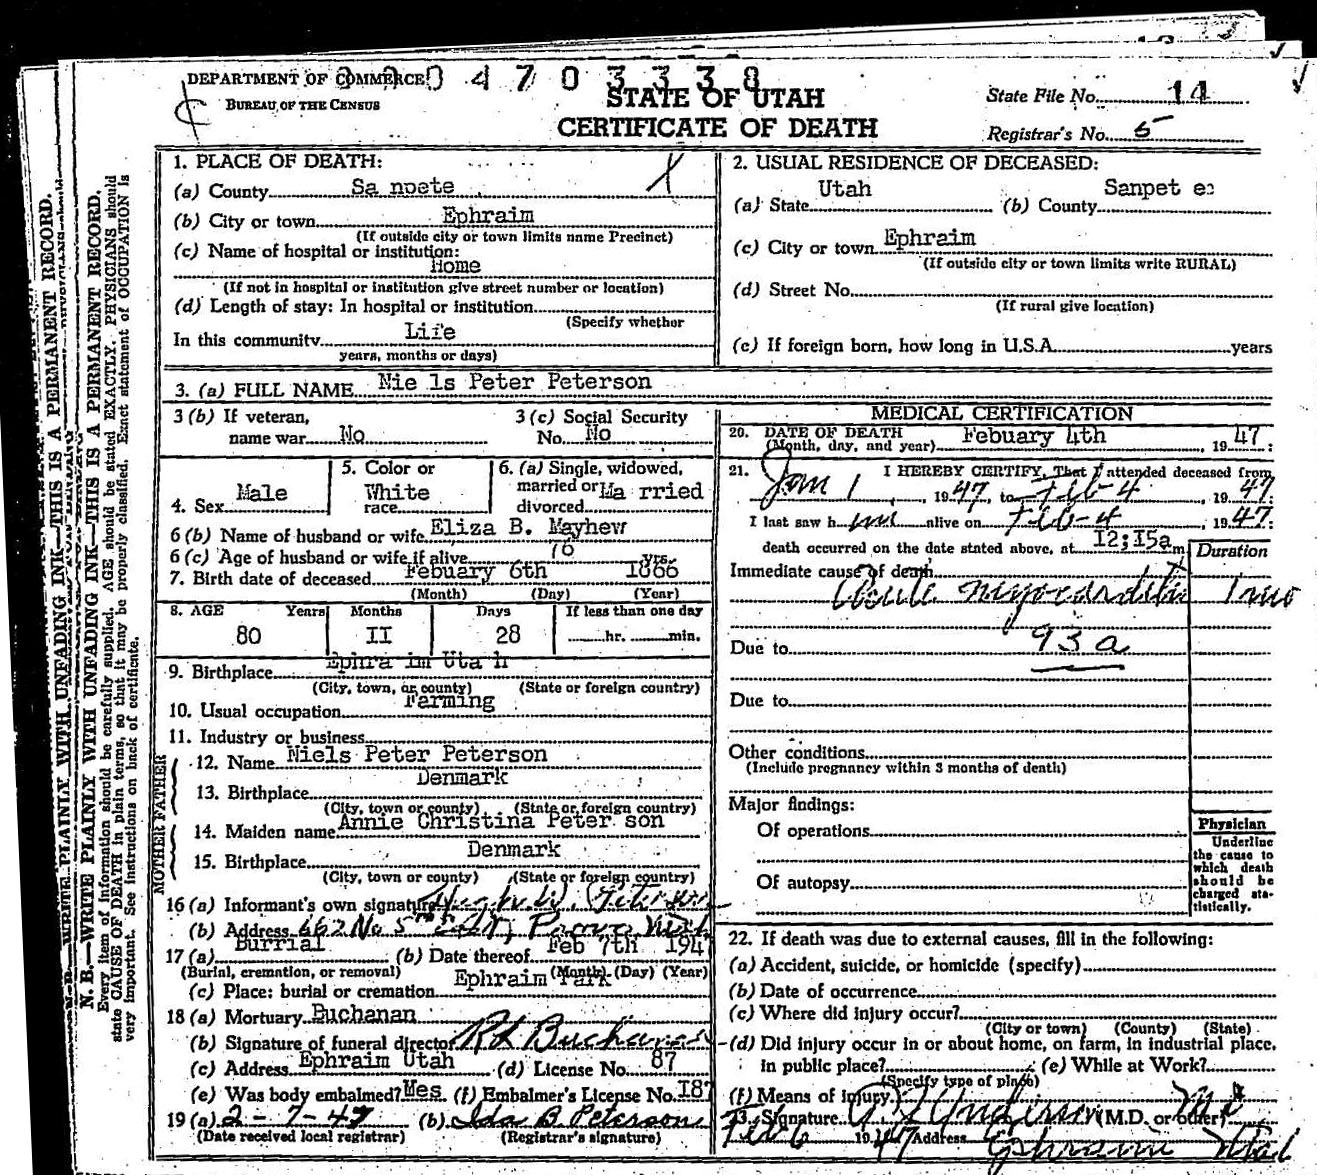 DEPARTMENT OF COMMERCE
0004703338
BUREAU OF THE CENSUS
STATE OF UTAH
CERTIFICATE OF DEATH
State File No. 14
Registrar's No. 5
1. PLACE OF DEATH:
(a) County Sa npete
(b) City or town Ephraim
(If outside city or town limits name Precinct)
(c) Name of hospital or institution:
Home
(If not in hospital or institution give street number or location)
(d) Length of stay: In hospital or institution
(Specify whether
In this community Life
years, months or days)
2. USUAL RESIDENCE OF DECEASED:
(a) State Utah (b) County Sanpet e
(c) City or town Ephraim
(If outside city or town limits write RURAL)
(d) Street No.
(If rural give location)
(e) If foreign born, how long in U.S.A. years
3. (a) FULL NAME Nie ls Peter Peterson
3 (b) If veteran,
name war No
3 (c) Social Security
No. No
4. Sex Male
5. Color or
race White
6. (a) Single, widowed,
married or
divorced Ma rried
6 (b) Name of husband or wife Eliza B. Mayhew
6 (c) Age of husband or wife if alive 76 yrs.
7. Birth date of deceased Febuary 6th 1866
(Month) (Day) (Year)
8. AGE Years Months Days If less than one day
80 II 28 hr. min.
9. Birthplace Ephra im Uta h
(City, town, or county) (State or foreign country)
10. Usual occupation Farming
11. Industry or business
FATHER
12. Name Niels Peter Peterson
13. Birthplace Denmark
(City, town or county) (State or foreign country)
MOTHER
14. Maiden name Annie Christina Peter son
15. Birthplace Denmark
(City, town or county) (State or foreign country)
16 (a) Informant's own signature Hugh W Peterson
(b) Address 662 No 5th East, Provo Utah
17 (a) Burrial (b) Date thereof Feb 7th 194
(Burial, cremation, or removal) (Month) (Day) (Year)
(c) Place: burial or cremation Ephraim Park
18 (a) Mortuary Buchanan
(b) Signature of funeral director Buchanan
(c) Address Ephraim Utah (d) License No. 87
(e) Was body embalmed? Mes (f) Embalmer's License No. I87
19 (a) 2-7-47 (b) Ida B Peterson
(Date received local registrar) (Registrar's signature)
MEDICAL CERTIFICATION
20. DATE OF DEATH
(Month, day, and year) Febuary 4th 19 47 :
21. I HEREBY CERTIFY, That I attended deceased from
Jan 1, 19 47, to Feb-4, 19 47:
I last saw h im alive on Feb-4, 19 47:
death occurred on the date stated above, at I2;I5a m
Duration
Immediate cause of death
Acute myocarditis 1 mo
Due to 93a
Due to
Other conditions
(Include pregnancy within 3 months of death)
Major findings:
Of operations
Of autopsy
Physician
Underline
the cause to
which death
should be
charged sta-
tistically.
22. If death was due to external causes, fill in the following:
(a) Accident, suicide, or homicide (specify)
(b) Date of occurrence
(c) Where did injury occur?
(City or town) (County) (State)
(d) Did injury occur in or about home, on farm, in industrial place,
in public place? (e) While at Work?
(Specify type of place)
(f) Means of Injury
23. Signature Anderson (M.D. or other) Md
Feb 6 19 47 Address Ephraim Utah
N. B.—WRITE PLAINLY WITH UNFADING INK—THIS IS A PERMANENT RECORD.
N. B.—WRITE PLAINLY WITH UNFADING INK—THIS IS A PERMANENT RECORD.
Every item of information should be carefully supplied. AGE should be stated EXACTLY. PHYSICIANS should
state CAUSE OF DEATH in plain terms, so that it may be properly classified. Exact statement of OCCUPATION is
very important. See instructions on back of certificate.